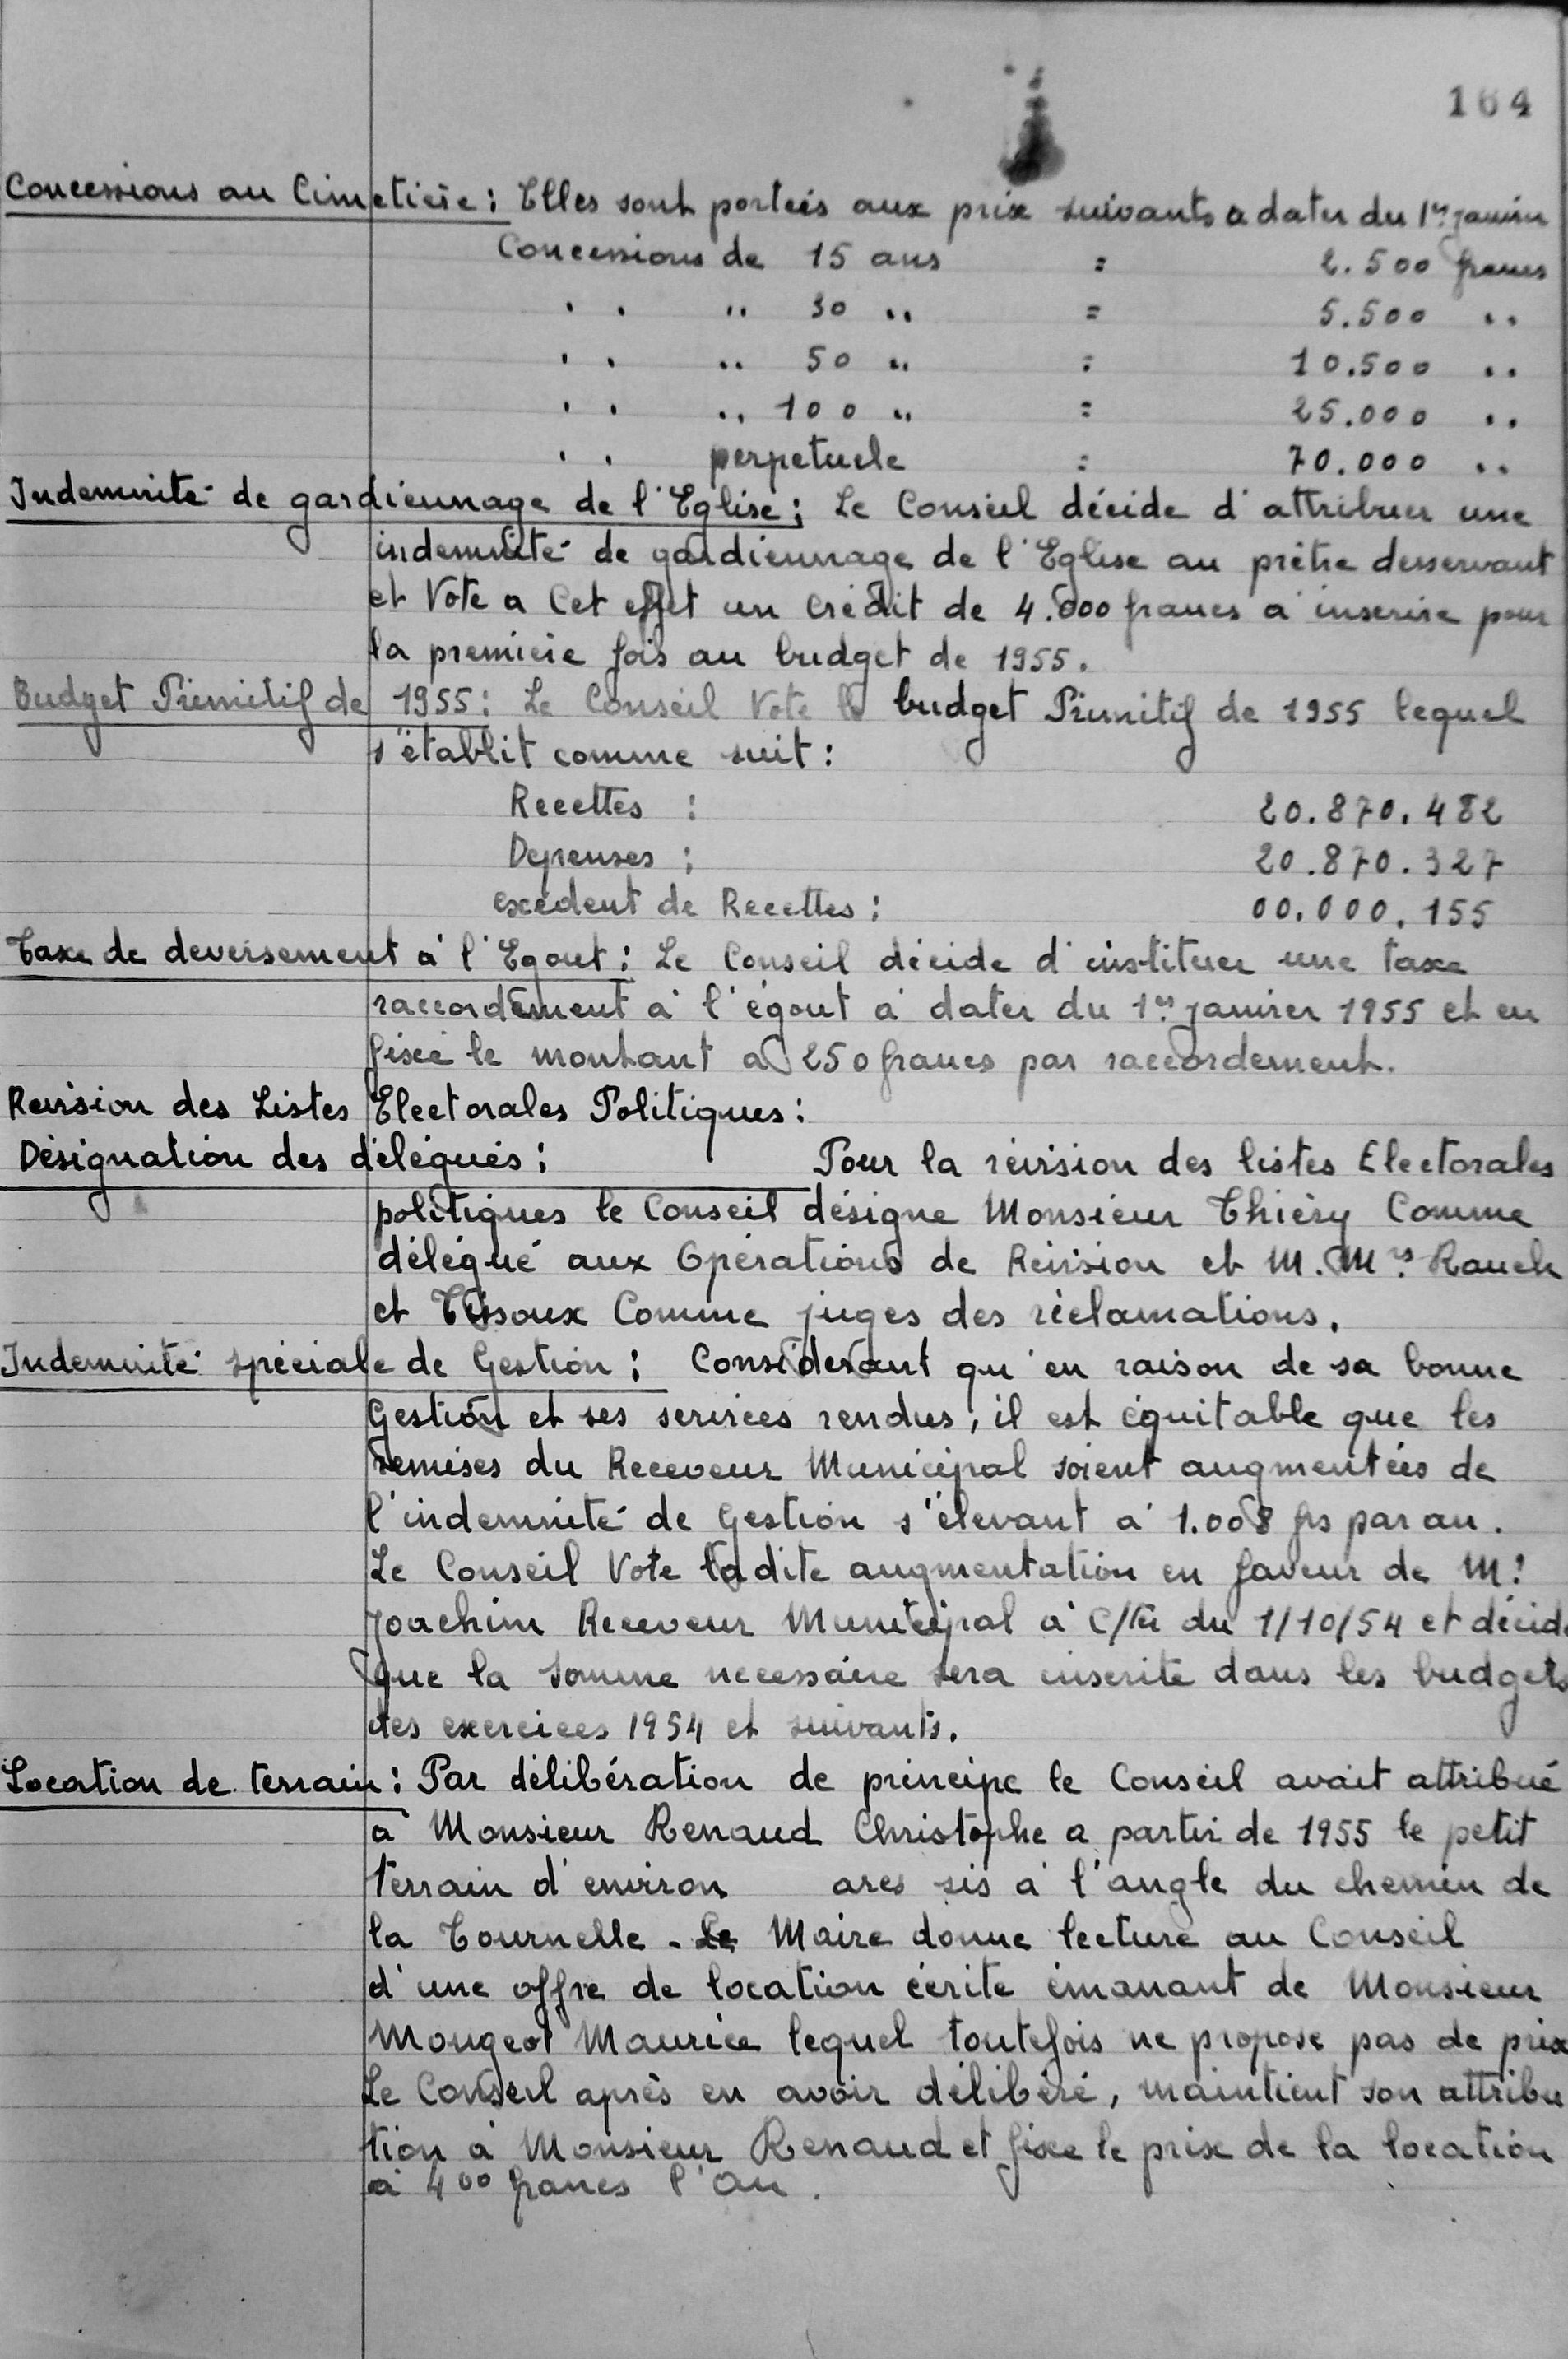 164
Concessions au Cimetière : Elles sont portées aux prix suivants a dater du 1er janvier
Concessions de 15 ans = 2.500 francs
. . " 30 " = 5.500 "
. . " 50 " = 10.500 "
. . " 100 " = 25.000 "
. . perpetuele = 70.000 "
Indemnité de gardiennage de l'Eglise ; Le Conseil décide d'attribuer une
indemnité de gardiennage de l'Eglise au prêtre desservant
et Vote a Cet effet un crédit de 4.000 francs à inscrire pour
la première fois au budget de 1955.
Budget Primitif de 1955 : Le Conseil Vote le budget Primitif de 1955 lequel
s'établit comme suit :
Recettes : 20.870.482
Depenses : 20.870.327
excédent de Recettes : 00.000.155
Taxe de deversement à l'Egout : Le Conseil décide d'instituer une taxe
raccordement à l'égout à dater du 1er janvier 1955 et en
fixe le montant a 250 francs par raccordement.
Revision des Listes Electorales Politiques :
Désignation des délégués : Pour la révision des listes Electorales
politiques le Conseil désigne Monsieur Thiéry Comme
délégué aux Opérations de Révision et M. Mrs Rauch
et Comme juges des réclamations.
Indemnité spéciale de Gestion : Considérant qu'en raison de sa bonne
Gestion et ses services rendus, il est équitable que les
remises du Receveur Municipal soient augmentées de
l'indemnité de Gestion s'élevant à 1.008 frs par an.
Le Conseil Vote ladite augmentation en faveur de Mr
Joachim Receveur Municipal à C/ter du 1/10/54 et décide
que la somme necessaire sera inscrite dans les budgets
des exercices 1954 et suivants.
Location de terrain : Par délibération de principe le Conseil avait attribué
à Monsieur Renaud Christophe a partir de 1955 le petit
terrain d'environ ares sis à l'angle du chemin de
la Tournelle - Le Maire donne lecture au Conseil
d'une offre de location écrite émanant de Monsieur
Mougeot Maurice lequel toutefois ne propose pas de prix
Le Conseil après en avoir délibéré, maintient son attribu
tion à Monsieur Renaud et fixe le prix de la location
à 400 francs l'an.